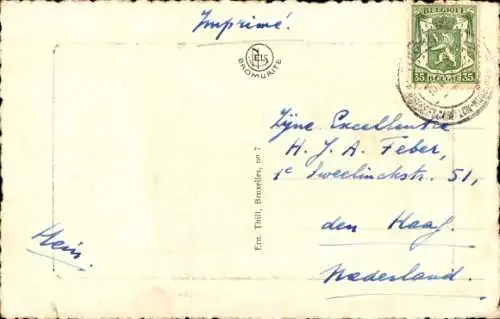 Imprimé.
BELGIQUE
35 35
BROMURITE
Zijne Excellentie
H. J. A. Feber,
1e Sweelinckstr. 51,
den Haag.
Nederland.
Hein.
Ern. Thill, Bruxelles, no 7